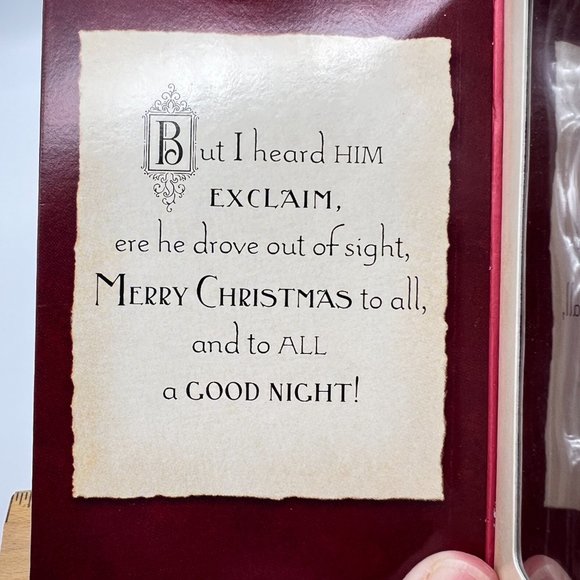 But I heard HIM
EXCLAIM,
ere he drove out of sight,
MERRY CHRISTMAS to all,
and to ALL
a GOOD NIGHT!